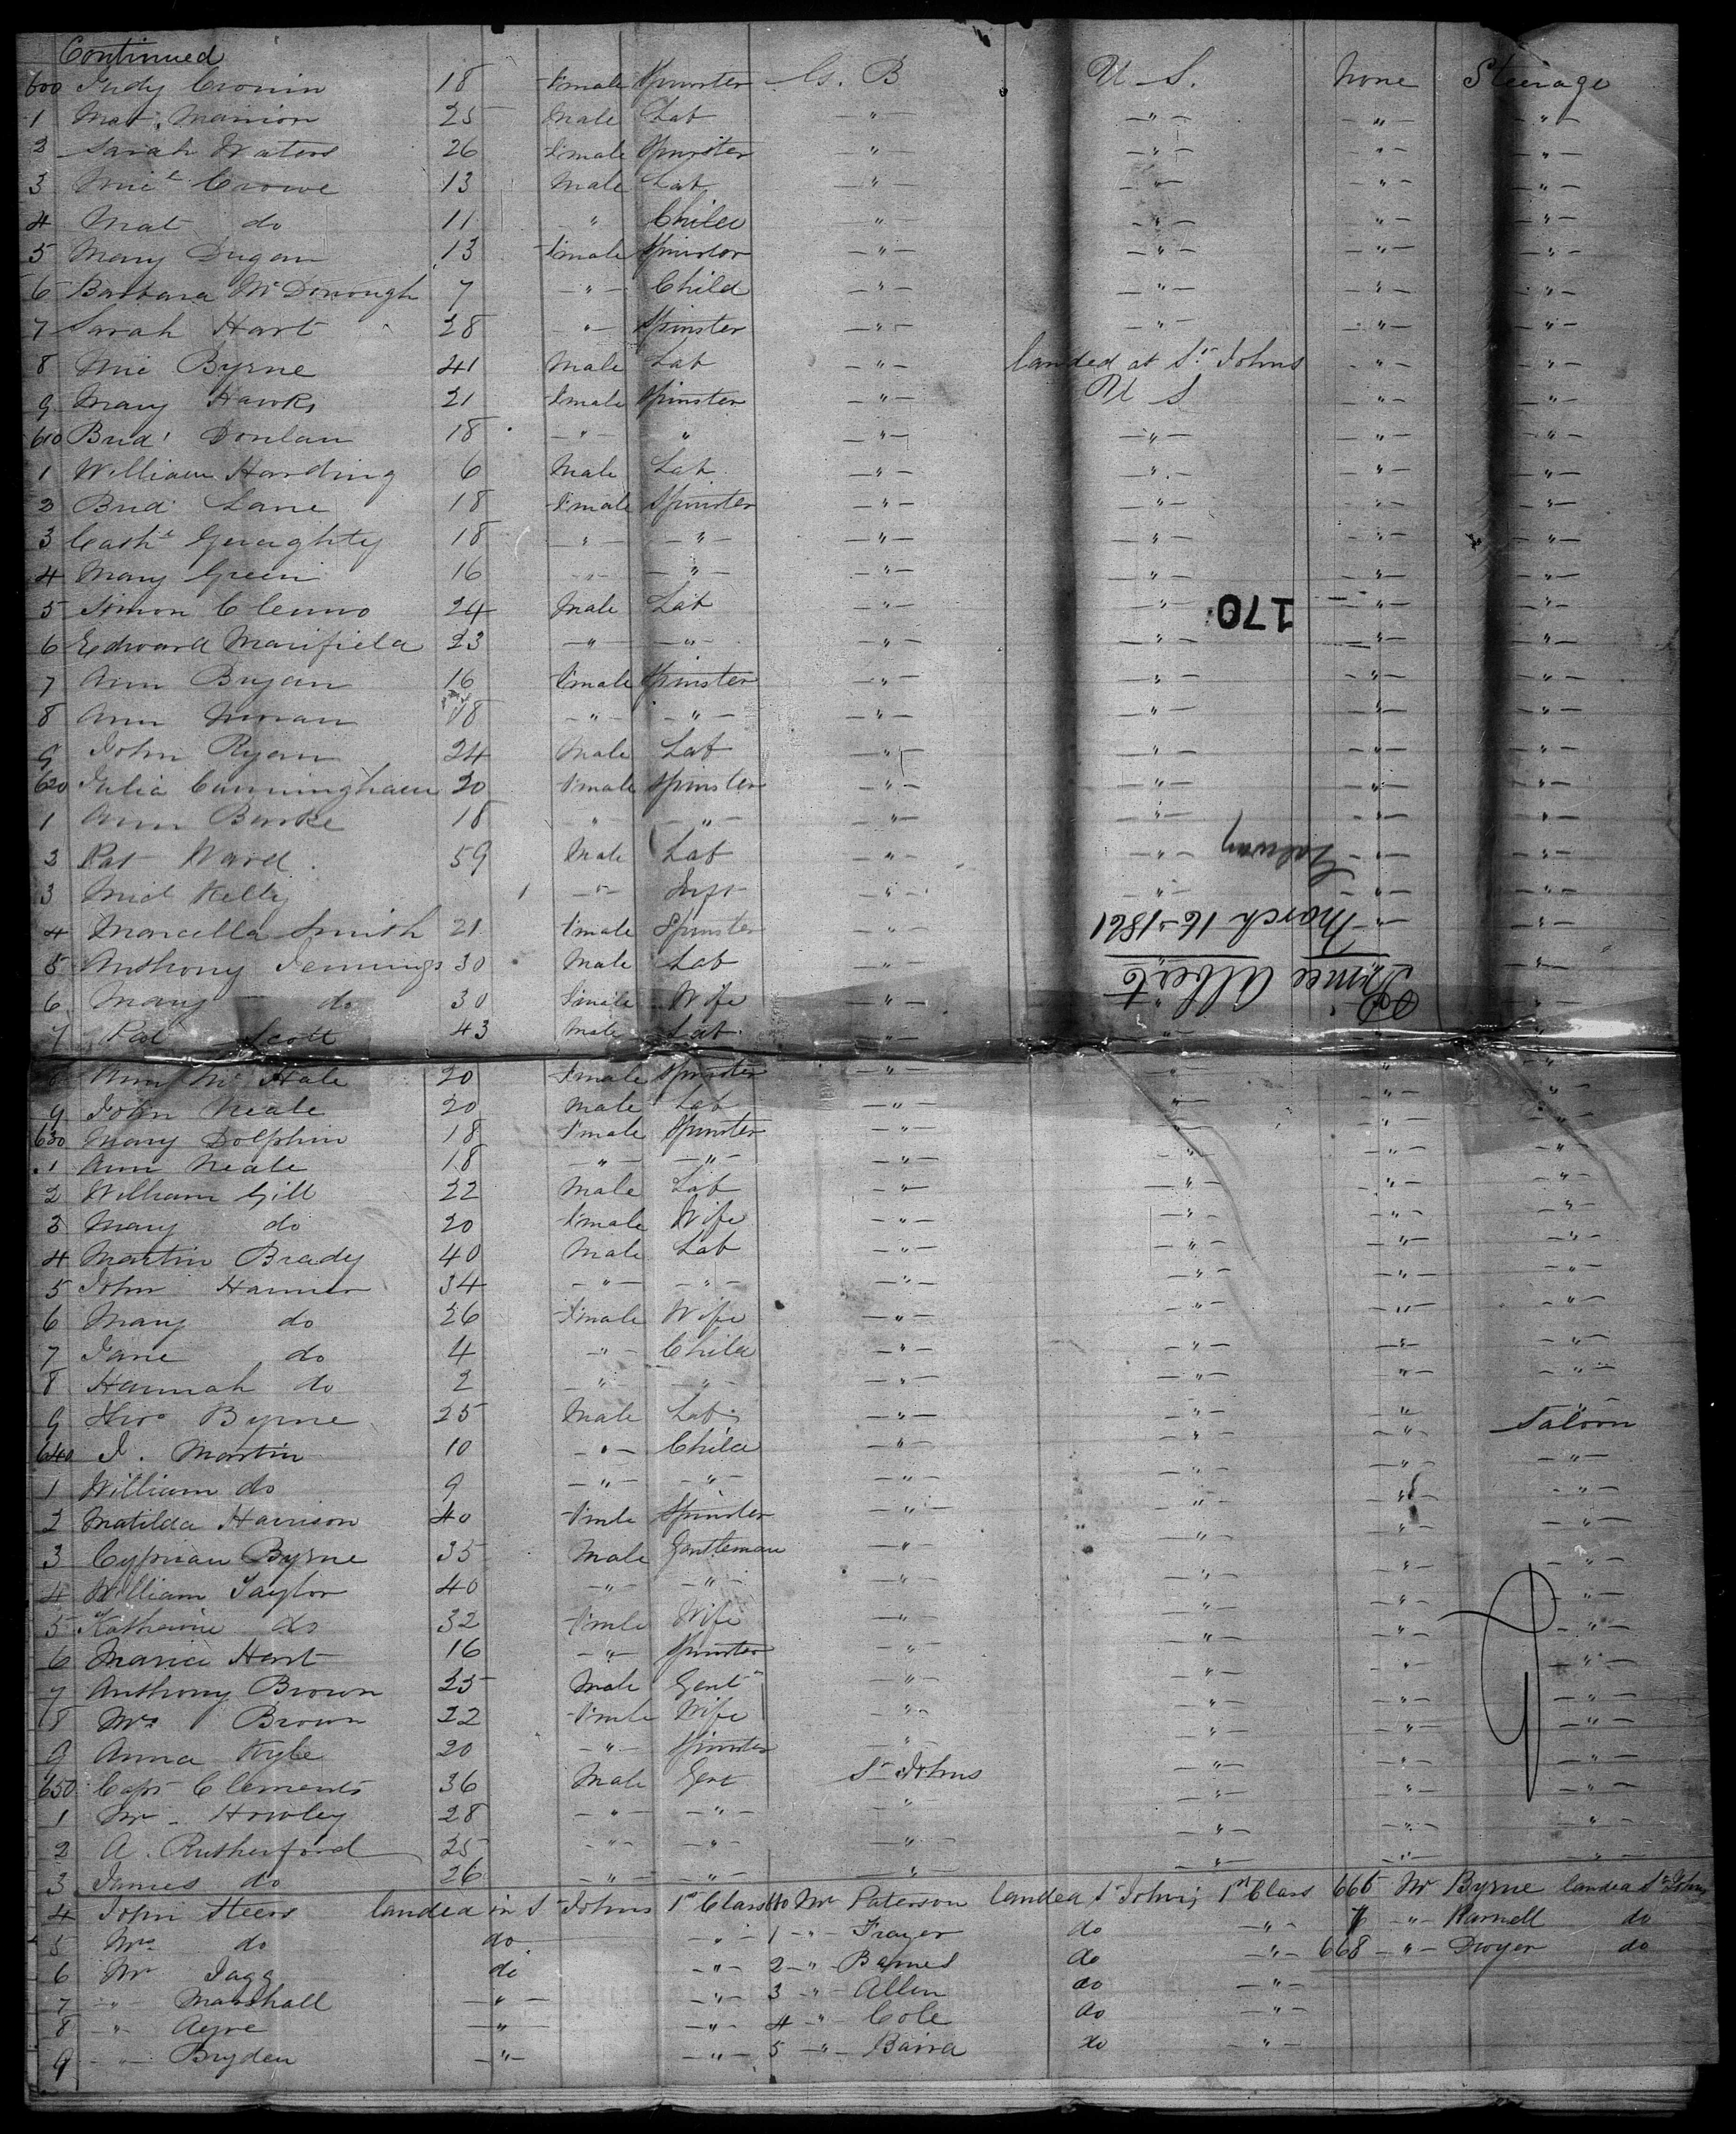 Continued
600 Judy Cronin 18 Female Spinster G. B U S. None Steerage
1 Mat. Manion 25 Male Lab " " " "
2 Sarah Waters 26 Female Spinster " " " "
3 Micl Crowe 13 Male Lab " " " "
4 Mat do 11 " Child " " " "
5 Mary Dugan 13 Female Spinster " " " "
6 Barbara McDonough 7 " Child " " " "
7 Sarah Hart 28 " Spinster " " " "
8 Mic Byrne 41 Male Lab " landed at St Johns " "
9 Mary Hawks 21 Female Spinster " U S " "
610 Brid Donlan 18 " " " " " "
1 William Harding 6 Male Lab " " " "
2 Brid Lane 18 Female Spinster " " " "
3 Cathe Geraghty 18 " " " " " "
4 Mary Green 16 " " " " " "
5 Simon 24 Male Lab " " " "
170
6 Edward 23 " " " " " "
7 Ann Bryan 16 Female Spinster " " " "
8 Ann 18 " " " " " "
9 John Ryan 24 Male Lab " " " "
620 Julia Cunningham 20 Female Spinster " " " "
1 Ann Burke 18 " " " " " "
2 Pat Ward 59 Male Lab " " " "
Galway
3 Micl Kelly 1 " Inft " " " "
4 Marcella Smith 21 Female Spinster " " "
March 16 1861
5 Anthony Jennings 30 Male Lab " "
Prince Albert
6 Mary do 30 Female Wife " " "
7 Pat Scott 43 Male Lab "
8 Ann McHale 20 Female Spinster " " " "
9 John Neale 20 Male Lab " " " "
630 Mary Dolphin 18 Female Spinster " " " "
1 Ann Neale 18 " " " " " "
2 William Gill 22 Male Lab " " " "
3 Mary do 20 Female Wife " " " "
4 Martin Brady 40 Male Lab " " " "
5 John 34 " " " " " "
6 Mary do 26 Female Wife " " " "
7 Jane do 4 " Child " " " "
8 Hannah do 2 " " " " " "
9 Byrne 25 Male Lab " " " Saloon
640 J. Martin 10 " Child " " " "
1 William do 9 " " " " " "
2 Matilda Harrison 40 Fmle Spinster " " " "
3 Cyprian Byrne 35 Male Gentleman " " " "
4 William Taylor 40 " " " " " "
5 Katherine do 32 Fmle Wife " " " "
6 Maria Hart 16 " Spinster " " " "
7 Anthony Brown 25 Male Gent " " " "
8 Mrs Brown 22 Fmle Wife " " " "
9 Anna Kyle 20 " Spinster " " " "
650 Capt Clements 36 Male Gent St Johns " " "
1 Mr Howley 28 " " " " " "
2 A. Rutherford 25 " " " " " "
3 James do 26 " " " " " "
4 John Steers landed in St Johns 1st Class 660 Mr Paterson landed St Johns 1st Class 666 Mr Byrne landed St Johns
5 Mrs do do " 1 " Frazer do " 7 " do
6 Mr Jagg do " 2 " Barnes do " 668 " Dwyer do
7 " Marshall " " 3 " Allen do "
8 " Ayre " " 4 " Cole do "
9 " Bryden " " 5 " Baird do "